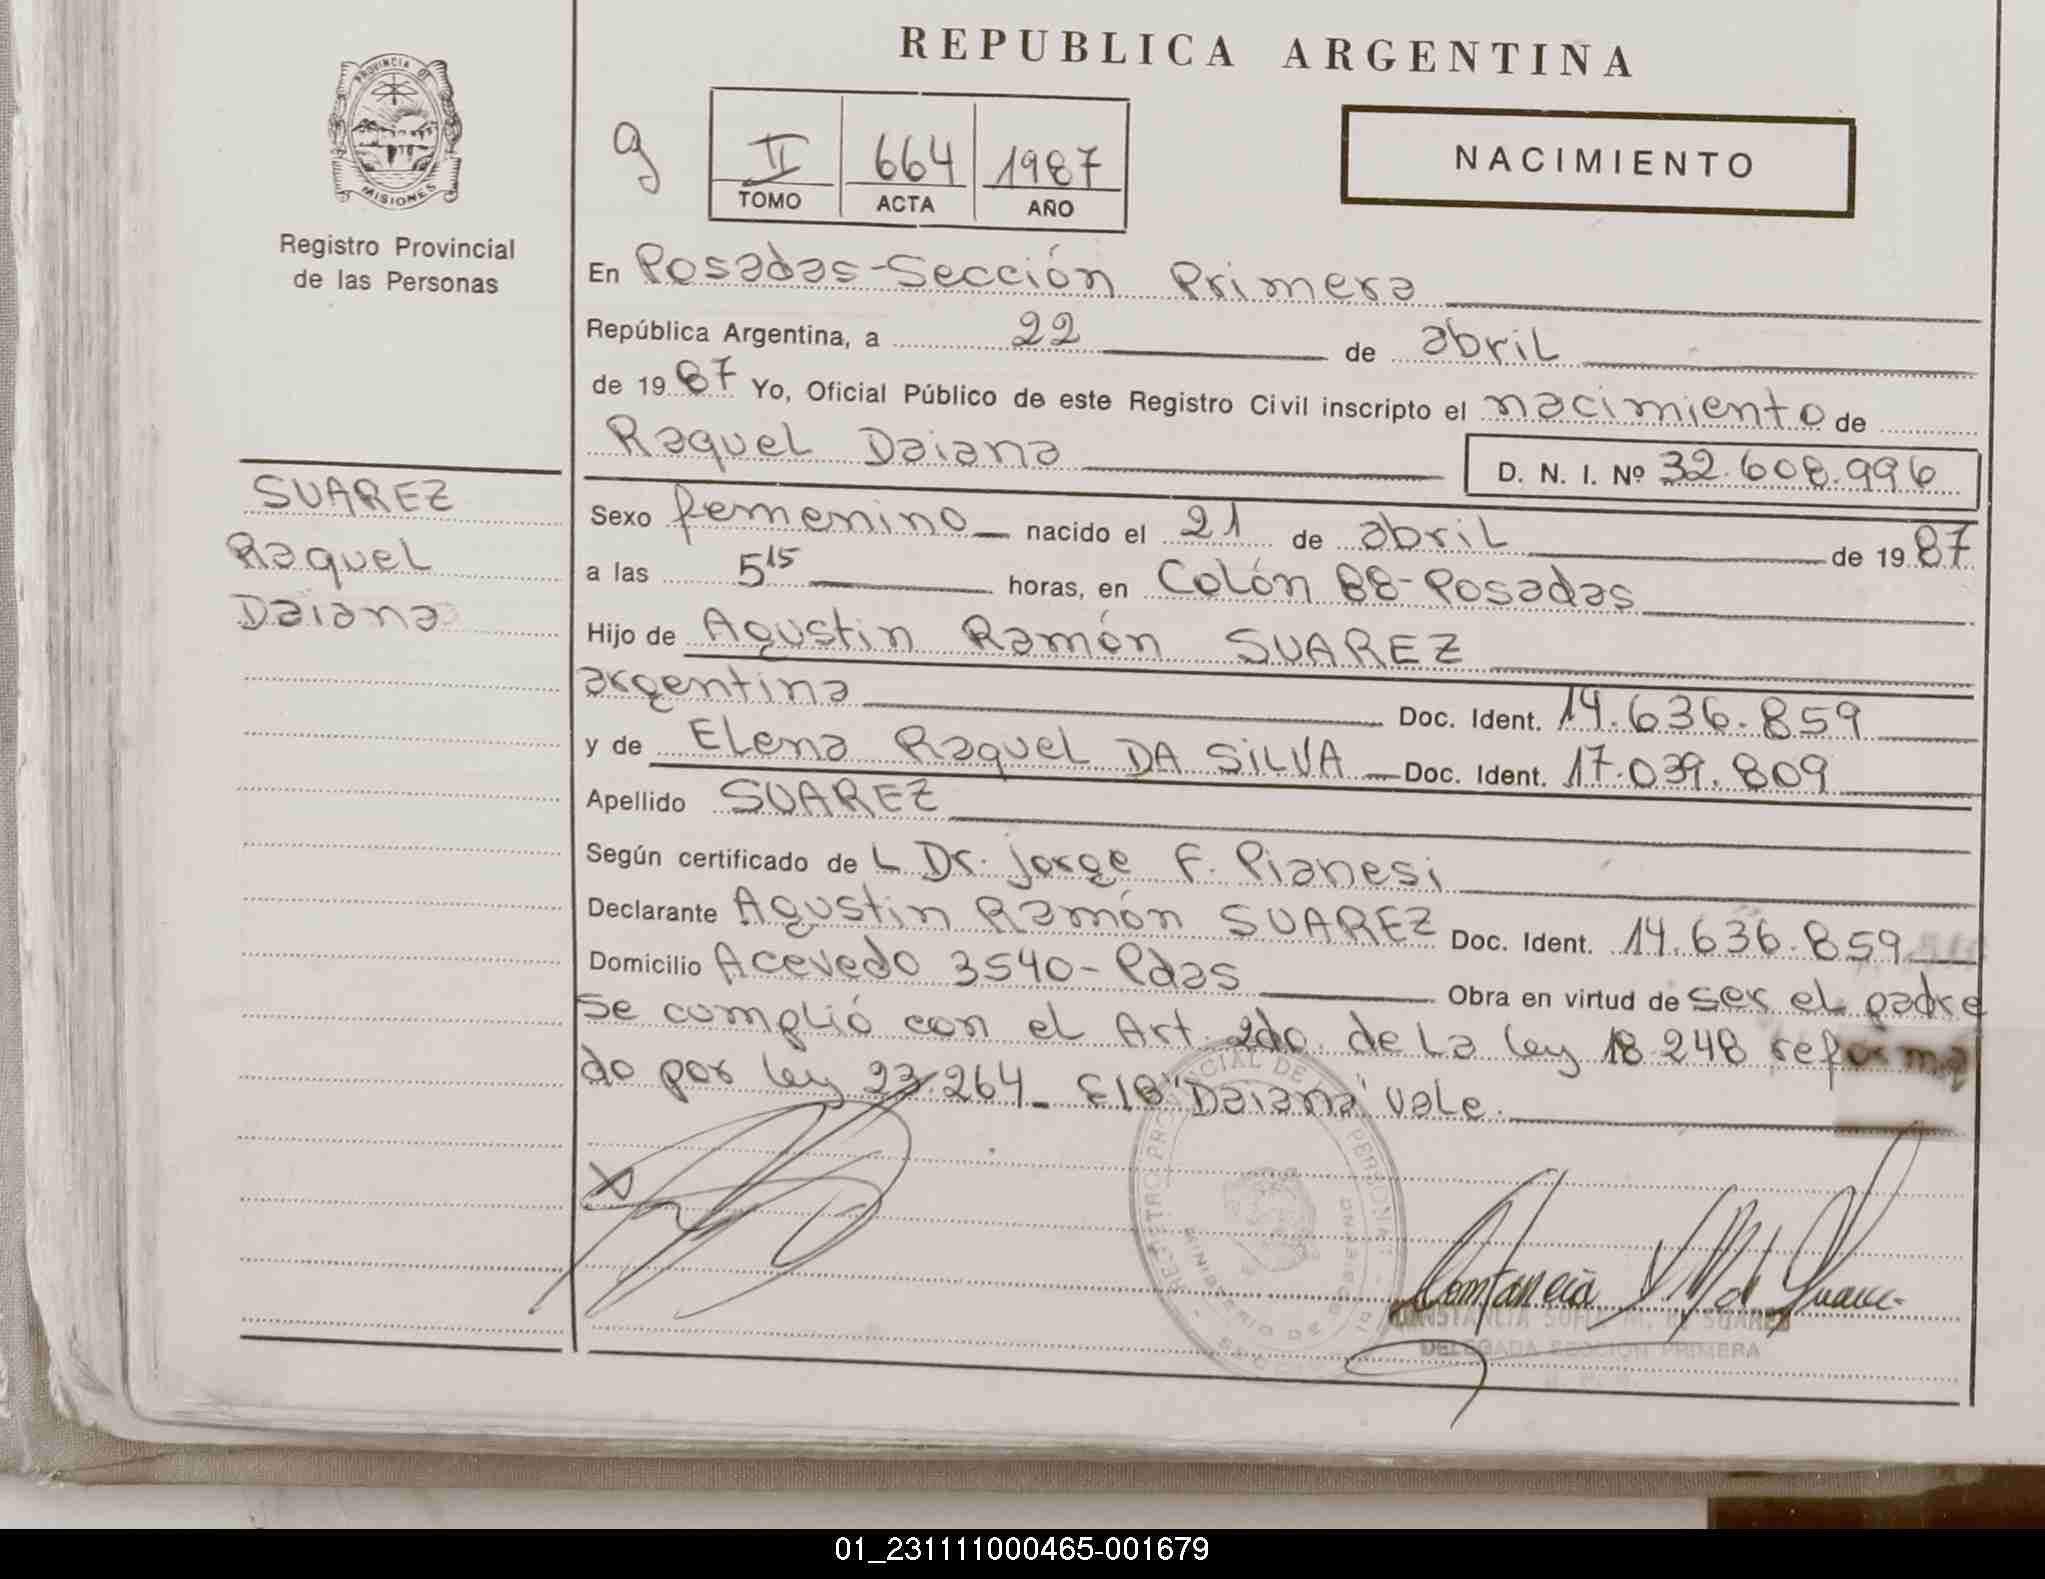 REPUBLICA ARGENTINA
PROVINCIA DE
MISIONES
Registro Provincial
de las Personas
g
II 664 1987
TOMO ACTA AÑO
NACIMIENTO
SUAREZ
Raquel
Daiana
En Posadas-Sección Primera
República Argentina, a 22 de abril
de 1987 Yo, Oficial Público de este Registro Civil inscripto el nacimiento de
Raquel Daiana
D. N. I. Nº 32.608.996
Sexo femenino nacido el 21 de abril de 1987
a las 5 15 horas, en Colón 88-Posadas
Hijo de Agustin Ramón SUAREZ
argentina Doc. Ident. 14.636.859
y de Elena Raquel DA SILVA Doc. Ident. 17.039.809
Apellido SUAREZ
Según certificado de L Dr. Jorge F. Pianesi
Declarante Agustin Ramón SUAREZ Doc. Ident. 14.636.859
Domicilio Acevedo 3540-Pdas Obra en virtud de ser el padre
Se complió con el Art. 2do. de la ley 18.248 reforma
do por ley 23.264_ E/B "Daiana" vale.
REGISTRO PROVINCIAL DE PERSONAS
MINISTERIO DE GOBIERNO
Constancia S M de Suarez
CONSTANCIA SOFIA M. DE SUAREZ
DELEGADA SECCION PRIMERA
01_231111000465-001679